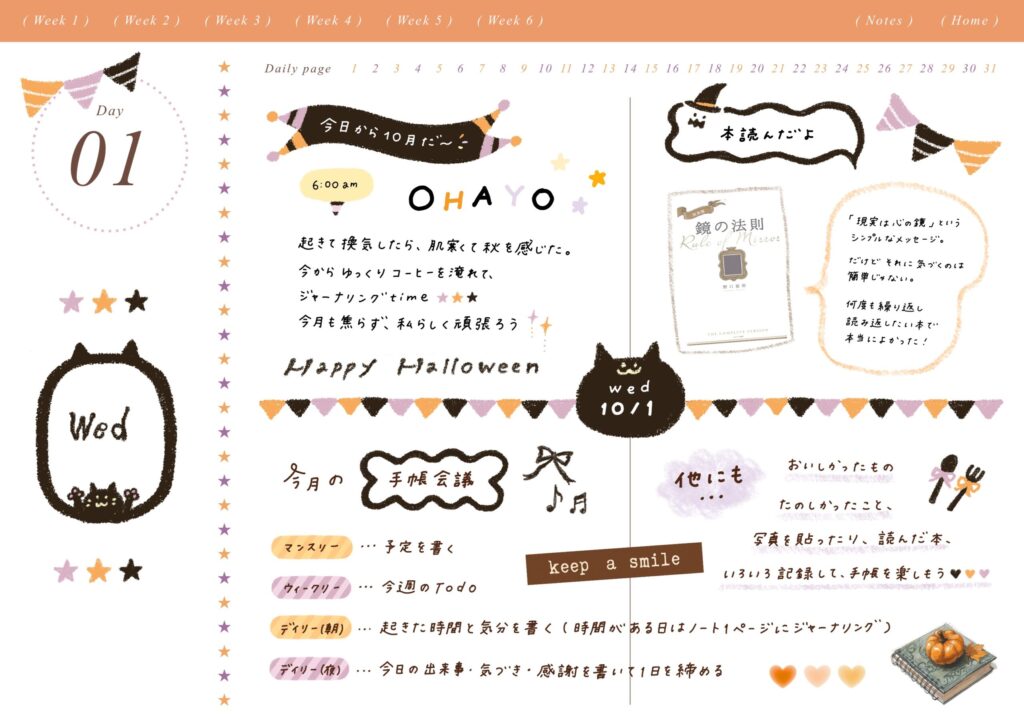 ( Week 1 ) ( Week 2 ) ( Week 3 ) ( Week 4 ) ( Week 5 ) ( Week 6 ) ( Notes ) ( Home )
Daily page 1 2 3 4 5 6 7 8 9 10 11 12 13 14 15 16 17 18 19 20 21 22 23 24 25 26 27 28 29 30 31
Day
01
Wed
今日から10月だ〜
6:00 am
OHAYO
起きて換気したら、肌寒くて秋を感じた。
今からゆっくりコーヒーを淹れて、
ジャーナリングtime
今月も焦らず、私らしく頑張ろう
Happy Halloween
本読んだよ
鏡の法則
Rule of Mirror
野口嘉則
THE COMPLETE VERSION
「現実は心の鏡」という
シンプルなメッセージ。
だけど それに気づくのは
簡単じゃない。
何度も繰り返し
読み返したい本で
本当によかった!
wed
10/1
今月の 手帳会議
マンスリー … 予定を書く
ウィークリー … 今週のTodo
デイリー(朝) … 起きた時間と気分を書く(時間がある日はノート1ページにジャーナリング)
デイリー(夜) … 今日の出来事・気づき・感謝を書いて1日を締める
keep a smile
他にも…
おいしかったもの
たのしかったこと、
写真を貼ったり、読んだ本、
いろいろ記録して、手帳を楽しもう